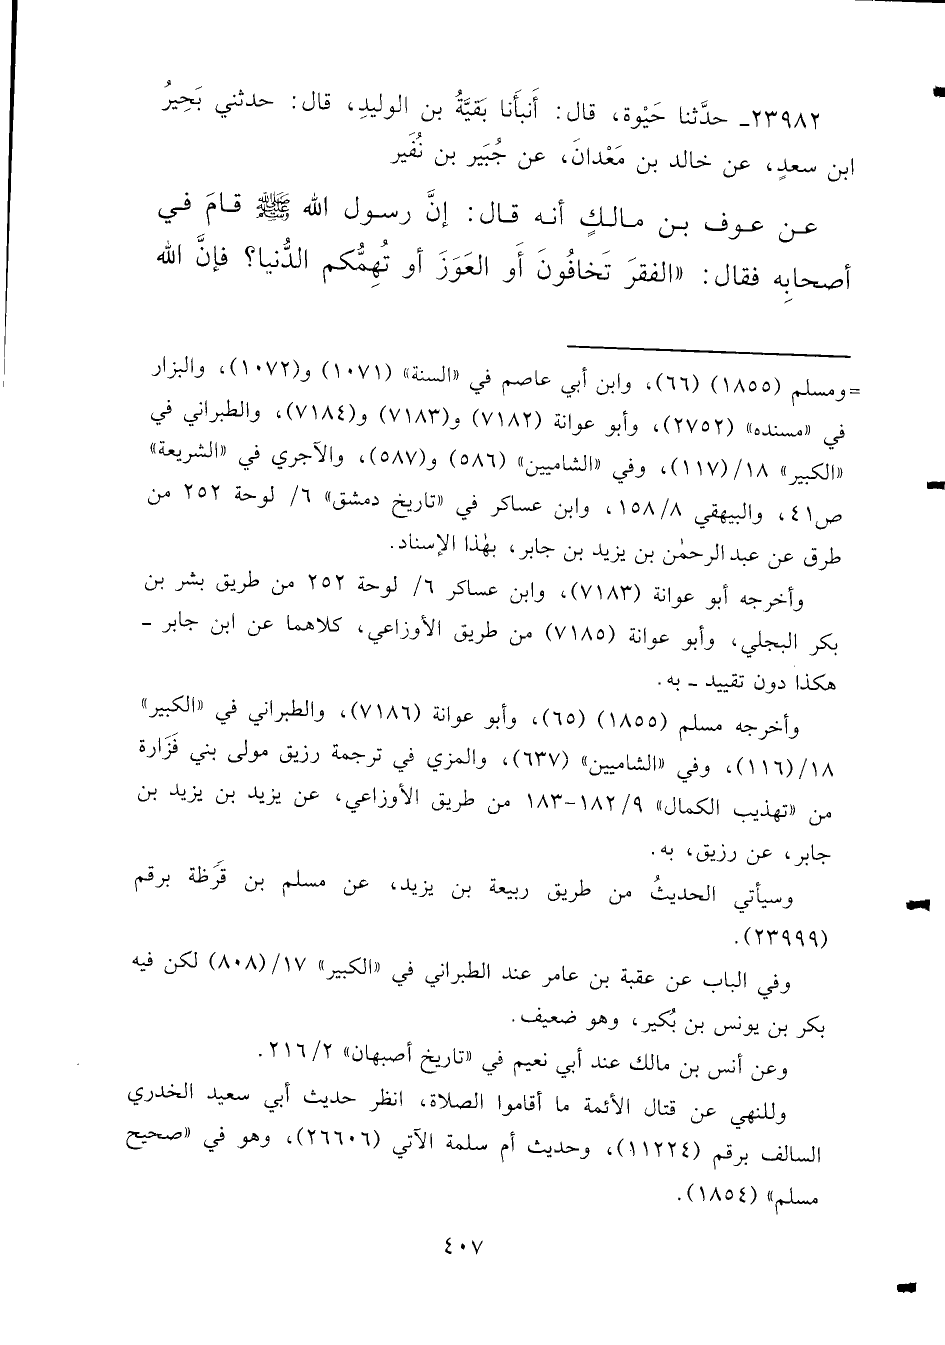 ٢٣٩٨٢ـ حدَّثنا حَيْوة، قال: أَنبأَنا بَقيَّةُ بن الوليدِ، قال: حدثني بَحِيرُ
ابن سعدٍ، عن خالد بن مَعْدانَ، عن جُبَير بن نُفَير
عن عوف بن مالكٍ أنه قال: إنَّ رسول الله ﷺ قامَ في
أصحابِه فقال: «الفقرَ تَخافُونَ أو العَوَزَ أو تُهِمُّكم الدُّنيا؟ فإنَّ الله
=ومسلم (١٨٥٥) (٦٦)، وابن أبي عاصم في «السنة» (١٠٧١) و(١٠٧٢)، والبزار
في «مسنده» (٢٧٥٢)، وأبو عوانة (٧١٨٢) و(٧١٨٣) و(٧١٨٤)، والطبراني في
«الكبير» ١٨/(١١٧)، وفي «الشاميين» (٥٨٦) و(٥٨٧)، والآجري في «الشريعة»
ص٤١، والبيهقي ١٥٨/٨، وابن عساكر في «تاريخ دمشق» ٦/ لوحة ٢٥٢ من
طرق عن عبد الرحمٰن بن يزيد بن جابر، بهٰذا الإسناد.
وأخرجه أبو عوانة (٧١٨٣)، وابن عساكر ٦/ لوحة ٢٥٢ من طريق بشر بن
بكر البجلي، وأبو عوانة (٧١٨٥) من طريق الأوزاعي، كلاهما عن ابن جابر ـ
هكذا دون تقييد ـ به.
وأخرجه مسلم (١٨٥٥) (٦٥)، وأبو عوانة (٧١٨٦)، والطبراني في «الكبير»
١٨/(١١٦)، وفي «الشاميين» (٦٣٧)، والمزي في ترجمة رزيق مولى بني فَزَارة
من «تهذيب الكمال» ٩/١٨٢-١٨٣ من طريق الأوزاعي، عن يزيد بن يزيد بن
جابر، عن رزيق، به.
وسيأتي الحديثُ من طريق ربيعة بن يزيد، عن مسلم بن قَرَظة برقم
(٢٣٩٩٩).
وفي الباب عن عقبة بن عامر عند الطبراني في «الكبير» ١٧/(٨٠٨) لكن فيه
بكر بن يونس بن بُكير، وهو ضعيف.
وعن أنس بن مالك عند أبي نعيم في «تاريخ أصبهان» ٢١٦/٢.
وللنهي عن قتال الأئمة ما أقاموا الصلاة، انظر حديث أبي سعيد الخدري
السالف برقم (١١٢٢٤)، وحديث أم سلمة الآتي (٢٦٦٠٦)، وهو في «صحيح
مسلم» (١٨٥٤).
٤٠٧